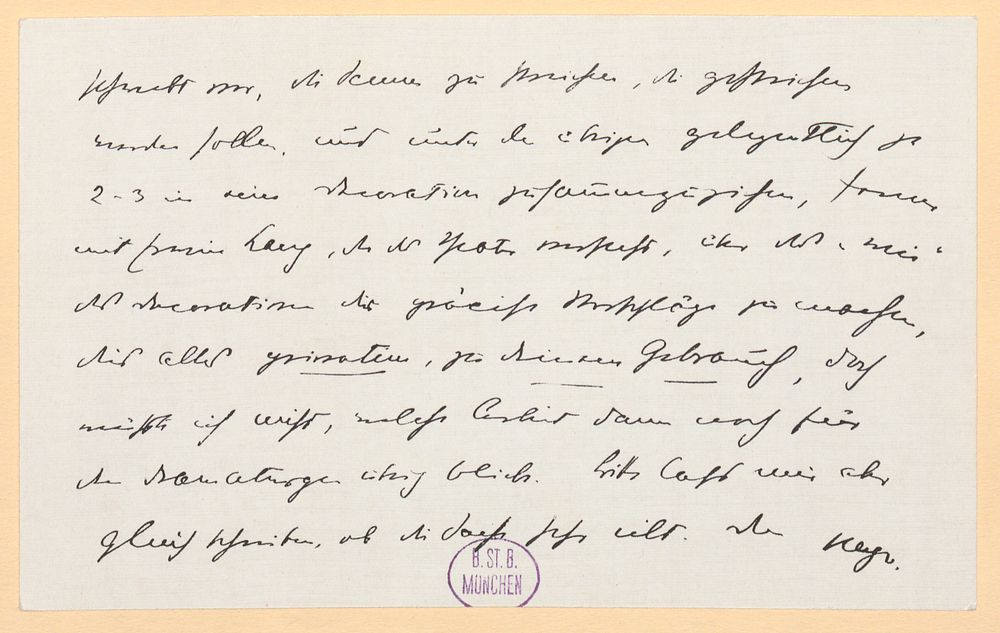 schwebt vor, die Scenen zu streichen, die gestrichen
werden sollen, und unter den übrigen gelegentlich je
2-3 in eine Decoration zusammenzuziehen, ferner
mit Lang, der das versteht, über das „wie“
der Decorationen dir präcise Vorschläge zu machen,
dies alles privatim, zu deinem Gebrauch, doch
müßte ich nicht, welche Arbeit dann noch für
den Dramaturgen übrig bliebe. Bitte laß mir aber
gleich schreiben, ob die Sache sehr eilt. Dein
B. ST. B.
MÜNCHEN